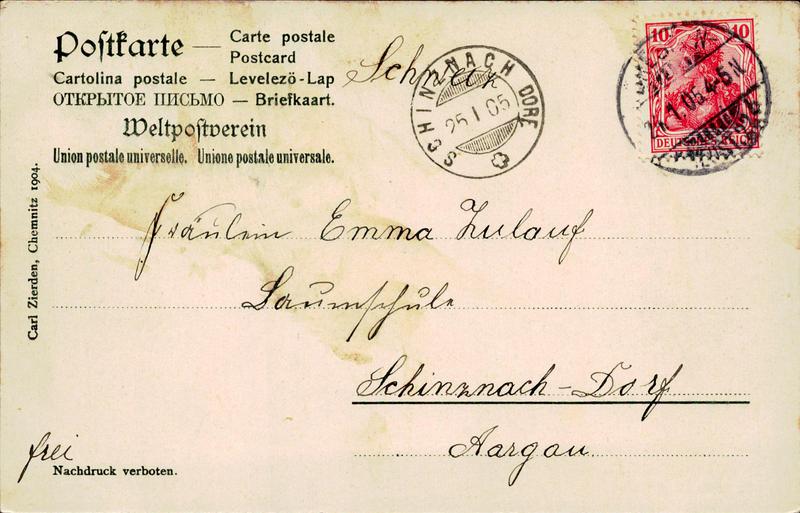 Postkarte — Carte postale
Postcard
Cartolina postale — Levelezö-Lap
ОТКРЫТОЕ ПИСЬМО — Briefkaart.
Weltpostverein
Union postale universelle. Unione postale universale.
SCHINZNACH DORF
25.I.05
10 10
DEUTSCHES REICH
1.05.4-5N
Carl Zierden, Chemnitz 1904.
Fräulein Emma Zulauf
Baumschule
Schinznach-Dorf
Aargau.
frei
Nachdruck verboten.